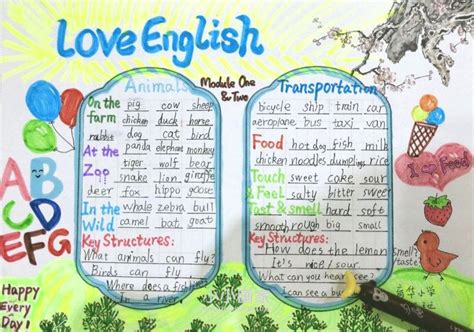 Love English
Module One
& Two
Animals
On the pig cow sheep
farm chicken duck horse
rabbit dog cat bird
At the panda elephant monkey
Zoo tiger wolf bear
snake lian giraffe
deer fox hippo goose
In the whale zebra bull
Wild camel bat goat
Key Structures:
What animals can fly?
Birds can fly
Where does a fish
In a river
Transportation
bicycle ship train car
aeroplane bus taxi van
Food hot dog fish milk
chicken noodles dumplings rice
Touch sweet coke sour
& Feel salty bitter sweet
Tast & smell hard soft
smooth rough big small
Key Structures:
How does the lemon smell?
taste?
It's nice / sour
What can you hear / see?
I can see a bu
A B
C D
E F G
I Feed
Happy
Every
Day!